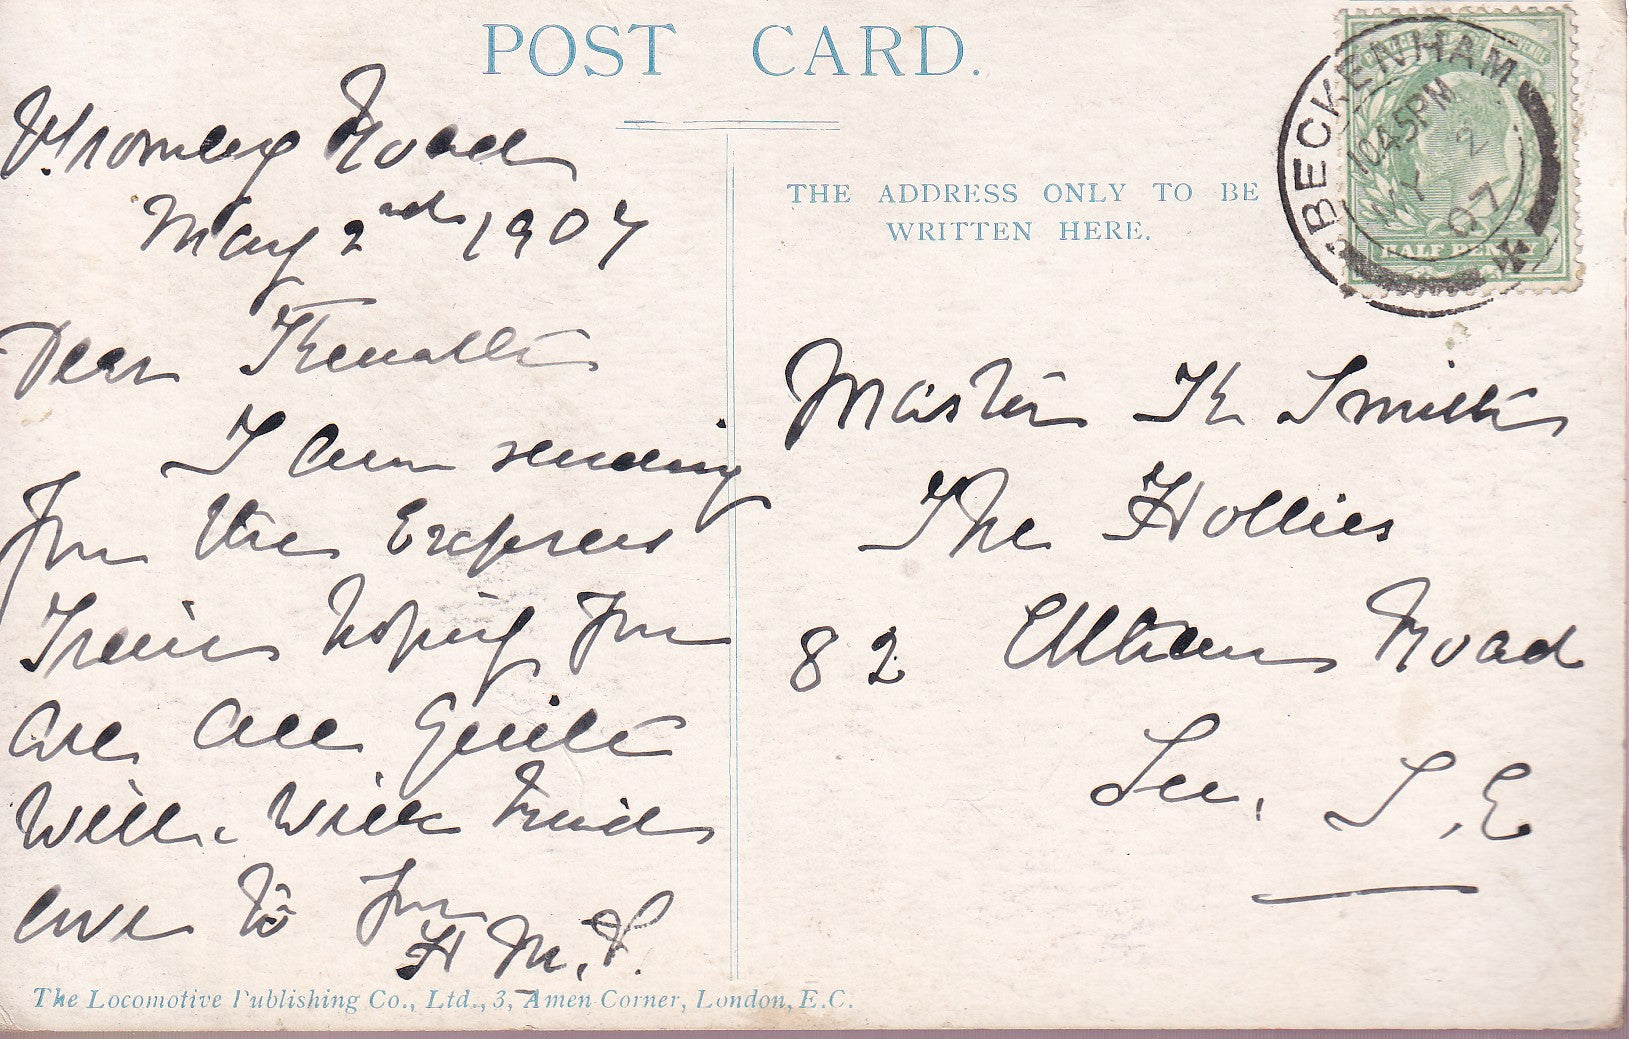 POST CARD.
Bromley Road
May 2nd 1907
Dear Kenneth
I am sending
you the Express
Train hoping you
are all quite
well. With kind
love to you
H M. P.
THE ADDRESS ONLY TO BE
WRITTEN HERE.
BECKENHAM
10.45PM
MY 2
07
HALF PENNY
Master K Smith
The Hollies
82 Eltham Road
Lee, S.E
The Locomotive Publishing Co., Ltd., 3, Amen Corner, London, E.C.